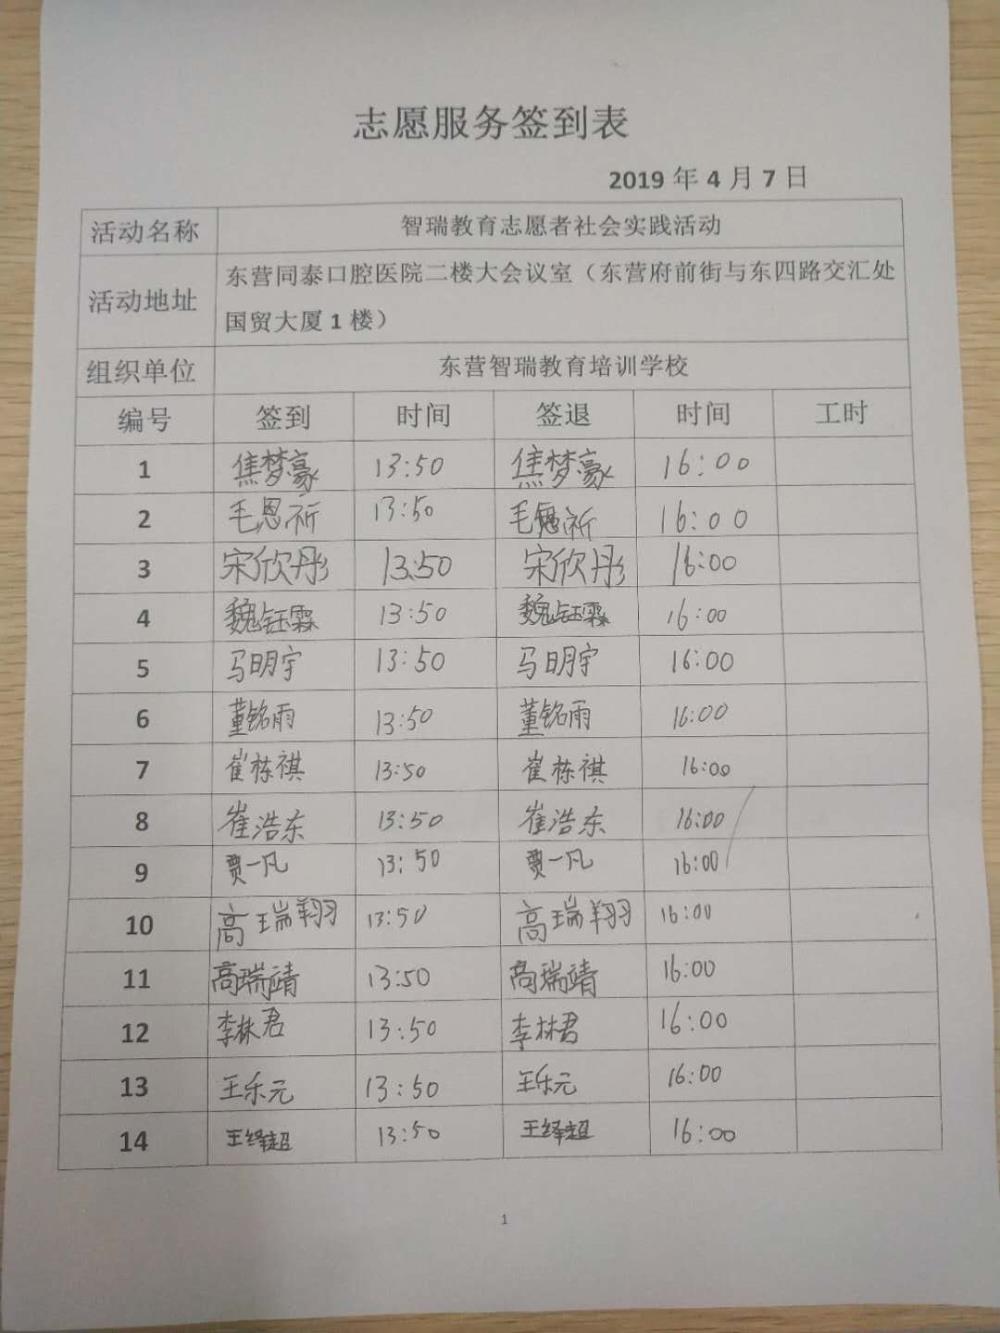 志愿服务签到表
2019 年 4 月 7 日
活动名称 智瑞教育志愿者社会实践活动
活动地址 东营同泰口腔医院二楼大会议室（东营府前街与东四路交汇处
国贸大厦 1 楼）
组织单位 东营智瑞教育培训学校
编号 签到 时间 签退 时间 工时
1 焦梦豪 13:50 焦梦豪 16:00
2 毛恩祈 13:50 毛恩祈 16:00
3 宋欣彤 13:50 宋欣彤 16:00
4 魏钰霖 13:50 魏钰霖 16:00
5 马明宇 13:50 马明宇 16:00
6 董铭雨 13:50 董铭雨 16:00
7 崔栋祺 13:50 崔栋祺 16:00
8 崔浩东 13:50 崔浩东 16:00
9 贾一凡 13:50 贾一凡 16:00
10 高瑞翔 13:50 高瑞翔 16:00
11 高瑞靖 13:50 高瑞靖 16:00
12 李林君 13:50 李林君 16:00
13 王乐元 13:50 王乐元 16:00
14 王绎超 13:50 王绎超 16:00
1